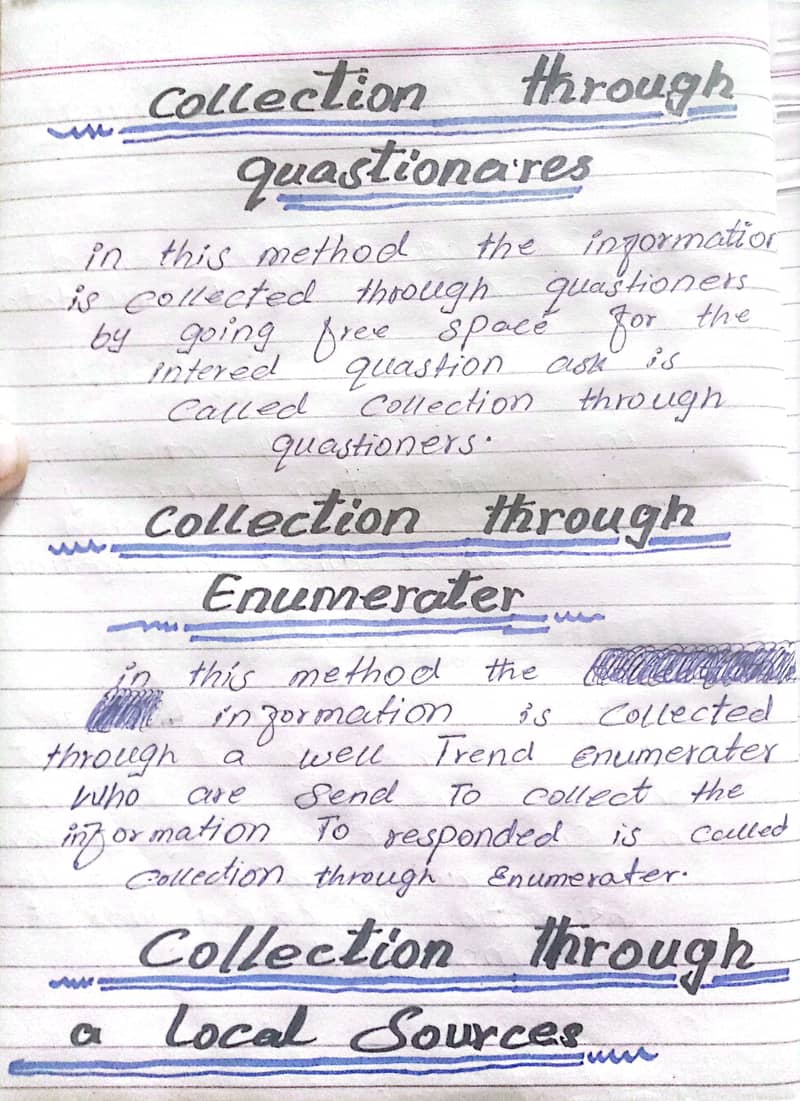 Collection through
quastionaires
in this method the information
is collected through quastioners
by going free space for the
intered quastion ask is
Called Collection through
quastioners.
Collection through
Enumerater
in this method the
information is Collected
through a well Trend Enumerater
Who are Send To collect the
information To responded is called
Collection through Enumerater.
Collection through
a Local Sources